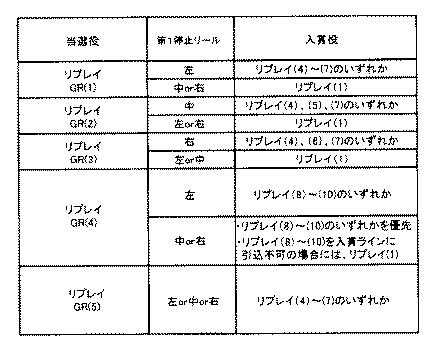 当選役 第1停止リール 入賞役
リプレイ
GR(1)
左 リプレイ(4)～(7)のいずれか
中or右 リプレイ(1)
リプレイ
GR(2)
中 リプレイ(4)、(5)、(7)のいずれか
左or右 リプレイ(1)
リプレイ
GR(3)
右 リプレイ(4)、(6)、(7)のいずれか
左or中 リプレイ(1)
リプレイ
GR(4)
左 リプレイ(8)～(10)のいずれか
中or右
・リプレイ(8)～(10)のいずれかを優先
・リプレイ(8)～(10)を入賞ラインに
引込不可の場合には、リプレイ(1)
リプレイ
GR(5)
左or中or右 リプレイ(4)～(7)のいずれか